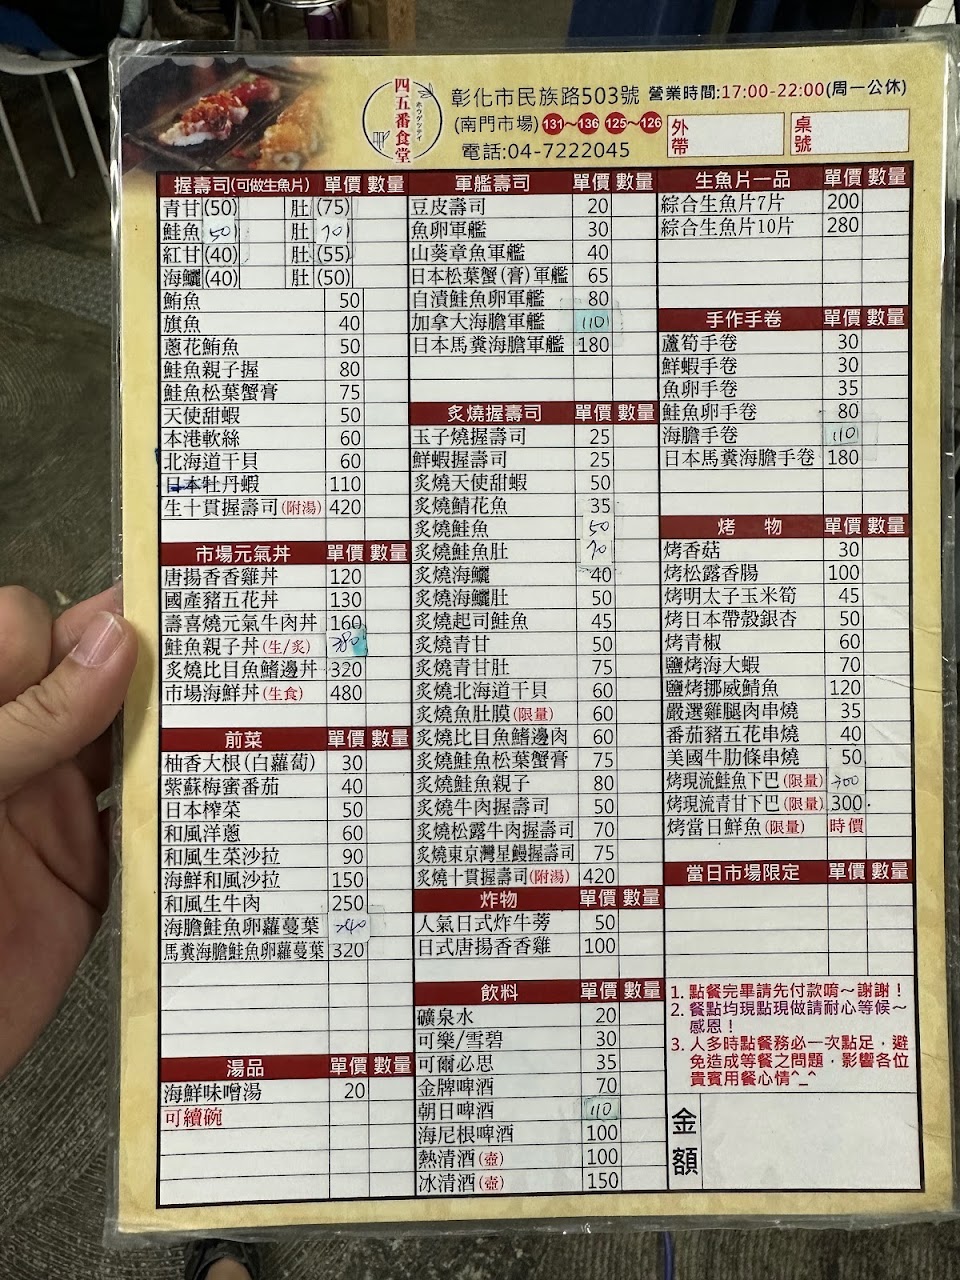 四五番食堂
彰化市民族路503號 營業時間:17:00-22:00(周一公休)
(南門市場) 131~136 125~126
電話:04-7222045
外帶
桌號
握壽司(可做生魚片) 單價 數量
青甘(50) 肚(75)
鮭魚(50) 肚(70)
紅甘(40) 肚(55)
海鱺(40) 肚(50)
鮪魚 50
旗魚 40
蔥花鮪魚 50
鮭魚親子握 80
鮭魚松葉蟹膏 75
天使甜蝦 50
本港軟絲 60
北海道干貝 60
日本牡丹蝦 110
生十貫握壽司(附湯) 420
市場元氣丼 單價 數量
唐揚香香雞丼 120
國產豬五花丼 130
壽喜燒元氣牛肉丼 160
鮭魚親子丼(生/炙) 380
炙燒比目魚鰭邊丼 320
市場海鮮丼(生食) 480
前菜 單價 數量
柚香大根(白蘿蔔) 30
紫蘇梅蜜番茄 40
日本榨菜 50
和風洋蔥 60
和風生菜沙拉 90
海鮮和風沙拉 150
和風生牛肉 250
海膽鮭魚卵蘿蔓葉 240
馬糞海膽鮭魚卵蘿蔓葉 320
湯品 單價 數量
海鮮味噌湯 20
可續碗
軍艦壽司 單價 數量
豆皮壽司 20
魚卵軍艦 30
山葵章魚軍艦 40
日本松葉蟹(膏)軍艦 65
自漬鮭魚卵軍艦 80
加拿大海膽軍艦 110
日本馬糞海膽軍艦 180
炙燒握壽司 單價 數量
玉子燒握壽司 25
鮮蝦握壽司 25
炙燒天使甜蝦 50
炙燒鯖花魚 35
炙燒鮭魚 50
炙燒鮭魚肚 70
炙燒海鱺 40
炙燒海鱺肚 50
炙燒起司鮭魚 45
炙燒青甘 50
炙燒青甘肚 75
炙燒北海道干貝 60
炙燒魚肚膜(限量) 60
炙燒比目魚鰭邊肉 60
炙燒鮭魚松葉蟹膏 75
炙燒鮭魚親子 80
炙燒牛肉握壽司 50
炙燒松露牛肉握壽司 70
炙燒東京灣星鰻握壽司 75
炙燒十貫握壽司(附湯) 420
炸物 單價 數量
人氣日式炸牛蒡 50
日式唐揚香香雞 100
飲料 單價 數量
礦泉水 20
可樂/雪碧 30
可爾必思 35
金牌啤酒 70
朝日啤酒 110
海尼根啤酒 100
熱清酒(壺) 100
冰清酒(壺) 150
生魚片一品 單價 數量
綜合生魚片7片 200
綜合生魚片10片 280
手作手卷 單價 數量
蘆筍手卷 30
鮮蝦手卷 30
魚卵手卷 35
鮭魚卵手卷 80
海膽手卷 110
日本馬糞海膽手卷 180
烤 物 單價 數量
烤香菇 30
烤松露香腸 100
烤明太子玉米筍 45
烤日本帶殼銀杏 50
烤青椒 60
鹽烤海大蝦 70
鹽烤挪威鯖魚 120
嚴選雞腿肉串燒 35
番茄豬五花串燒 40
美國牛肋條串燒 50
烤現流鮭魚下巴(限量) 300
烤現流青甘下巴(限量) 300
烤當日鮮魚(限量) 時價
當日市場限定 單價 數量
1. 點餐完畢請先付款唷~謝謝!
2. 餐點均現點現做請耐心等候~
感恩!
3. 人多時點餐務必一次點足,避
免造成等餐之問題,影響各位
貴賓用餐心情^_^
金額